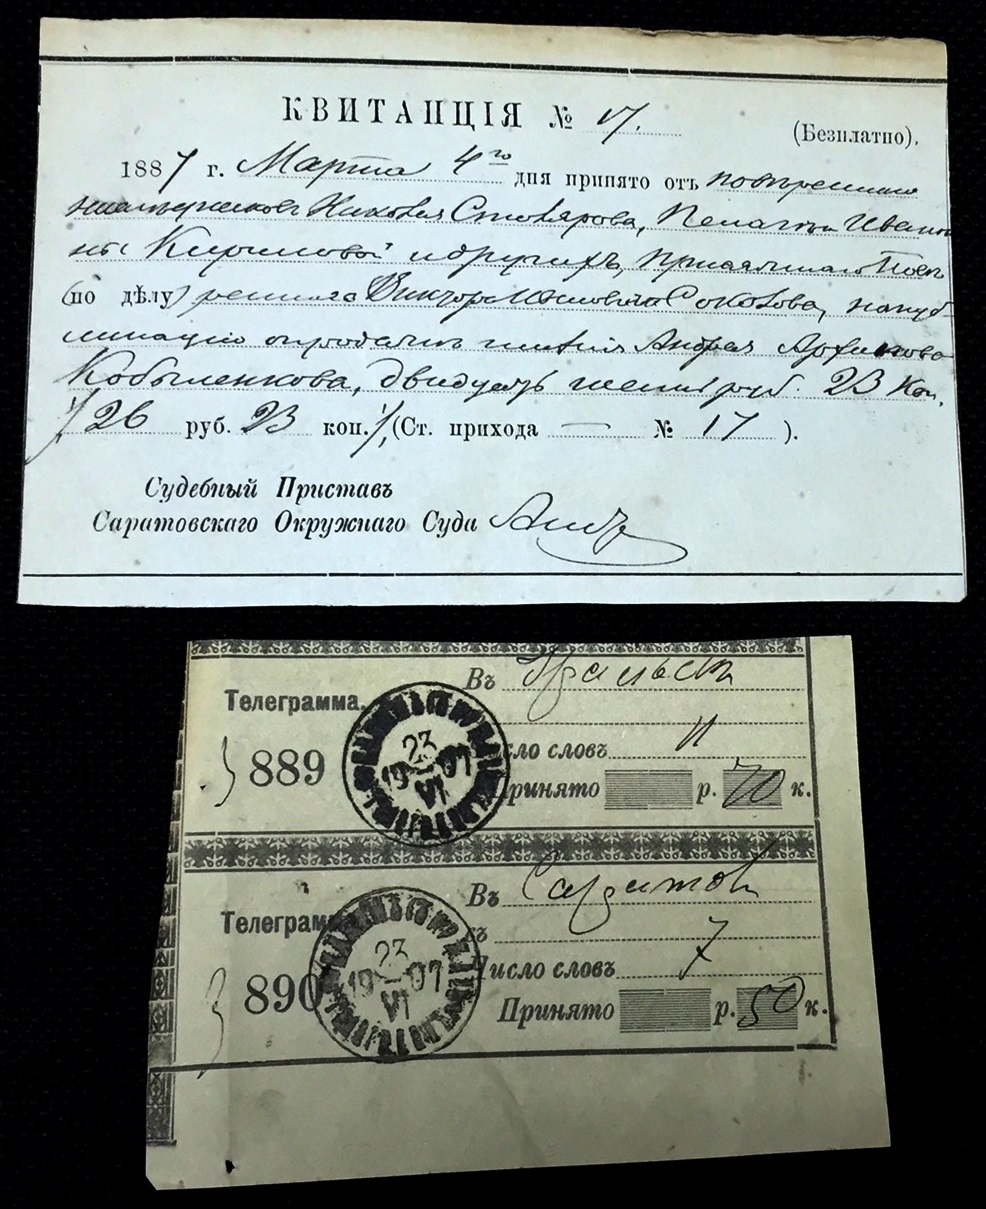 КВИТАНЦІЯ № 17.
(Безплатно).
1887 г. Марта 4го дня принято отъ повѣреннаго
Николая Столярова, Пелагеи Иванов
ны Кириловой и другихъ, Присяжнаго Повѣ
(по дѣлу) реннаго Соколова, на пуб
ликацію о продажѣ имѣнія Андрея Архипова
Кобыленкова, двадцать шесть руб. 23 коп.
26 руб. 23 коп. (Ст. прихода — № 17 ).
Судебный Приставъ
Саратовскаго Окружнаго Суда
Телеграмма.
889
Въ Уральскъ
Число словъ 11
Принято р. 70 к.
23
19 07
VI
Телеграмма
890
Въ Саратовъ
Число словъ 7
Принято р. 50 к.
23
19 07
VI